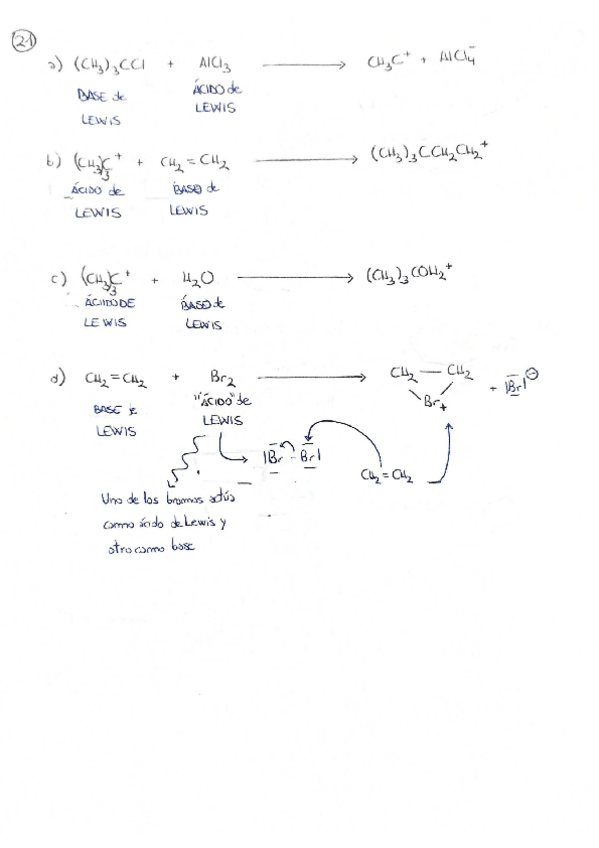 21
a) (CH₃)₃CCl + AlCl₃ ⟶ CH₃C⁺ + AlCl₄⁻
BASE de LEWIS ÁCIDO de LEWIS
b) (CH₃)₃C⁺ + CH₂=CH₂ ⟶ (CH₃)₃CCH₂CH₂⁺
ÁCIDO de LEWIS BASE de LEWIS
c) (CH₃)₃C⁺ + H₂O ⟶ (CH₃)₃COH₂⁺
ÁCIDO DE LEWIS BASE de LEWIS
d) CH₂=CH₂ + Br₂ ⟶ CH₂ — CH₂ Br+ + |Br|⊖
BASE de LEWIS "ÁCIDO" de LEWIS
|Br - Br|
CH₂=CH₂
Uno de los bromos actúa
como ácido de Lewis y
otro como base